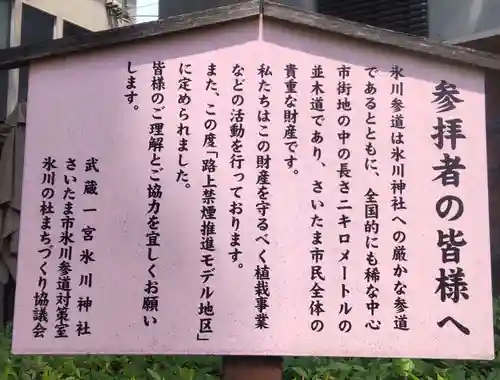 参拝者の皆様へ
氷川参道は氷川神社への厳かな参道
であるとともに、全国的にも稀な中心
市街地の中の長さ二キロメートルの
並木道であり、さいたま市民全体の
貴重な財産です。
私たちはこの財産を守るべく植栽事業
などの活動を行っております。
また、この度「路上禁煙推進モデル地区」
に定められました。
皆様のご理解とご協力を宜しくお願い
します。
武蔵一宮氷川神社
さいたま市氷川参道対策室
氷川の杜まちづくり協議会